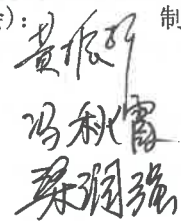 ）： 制
黄振
冯秋霞
梁润强